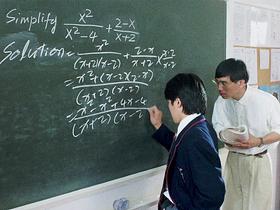 Simplify x²/(x²-4) + (2-x)/(x+2)
Solution = x²/((x+2)(x-2)) + (2-x)/(x+2) · (x-2)/(x-2)
= (x²+(x-2)(2-x))/((x+2)(x-2))
= (x²-x²+4x-4)/((x+2)(x-2